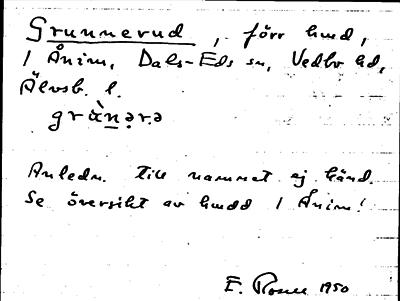 Grunnerud, förr hmd,
1 Ånim, Dals-Eds sn, Vedbo hd,
Älvsb. l.
grànərə
Anledn. till namnet ej känd.
Se översikt av hmdd 1 Ånim!
E. Rosell 1950